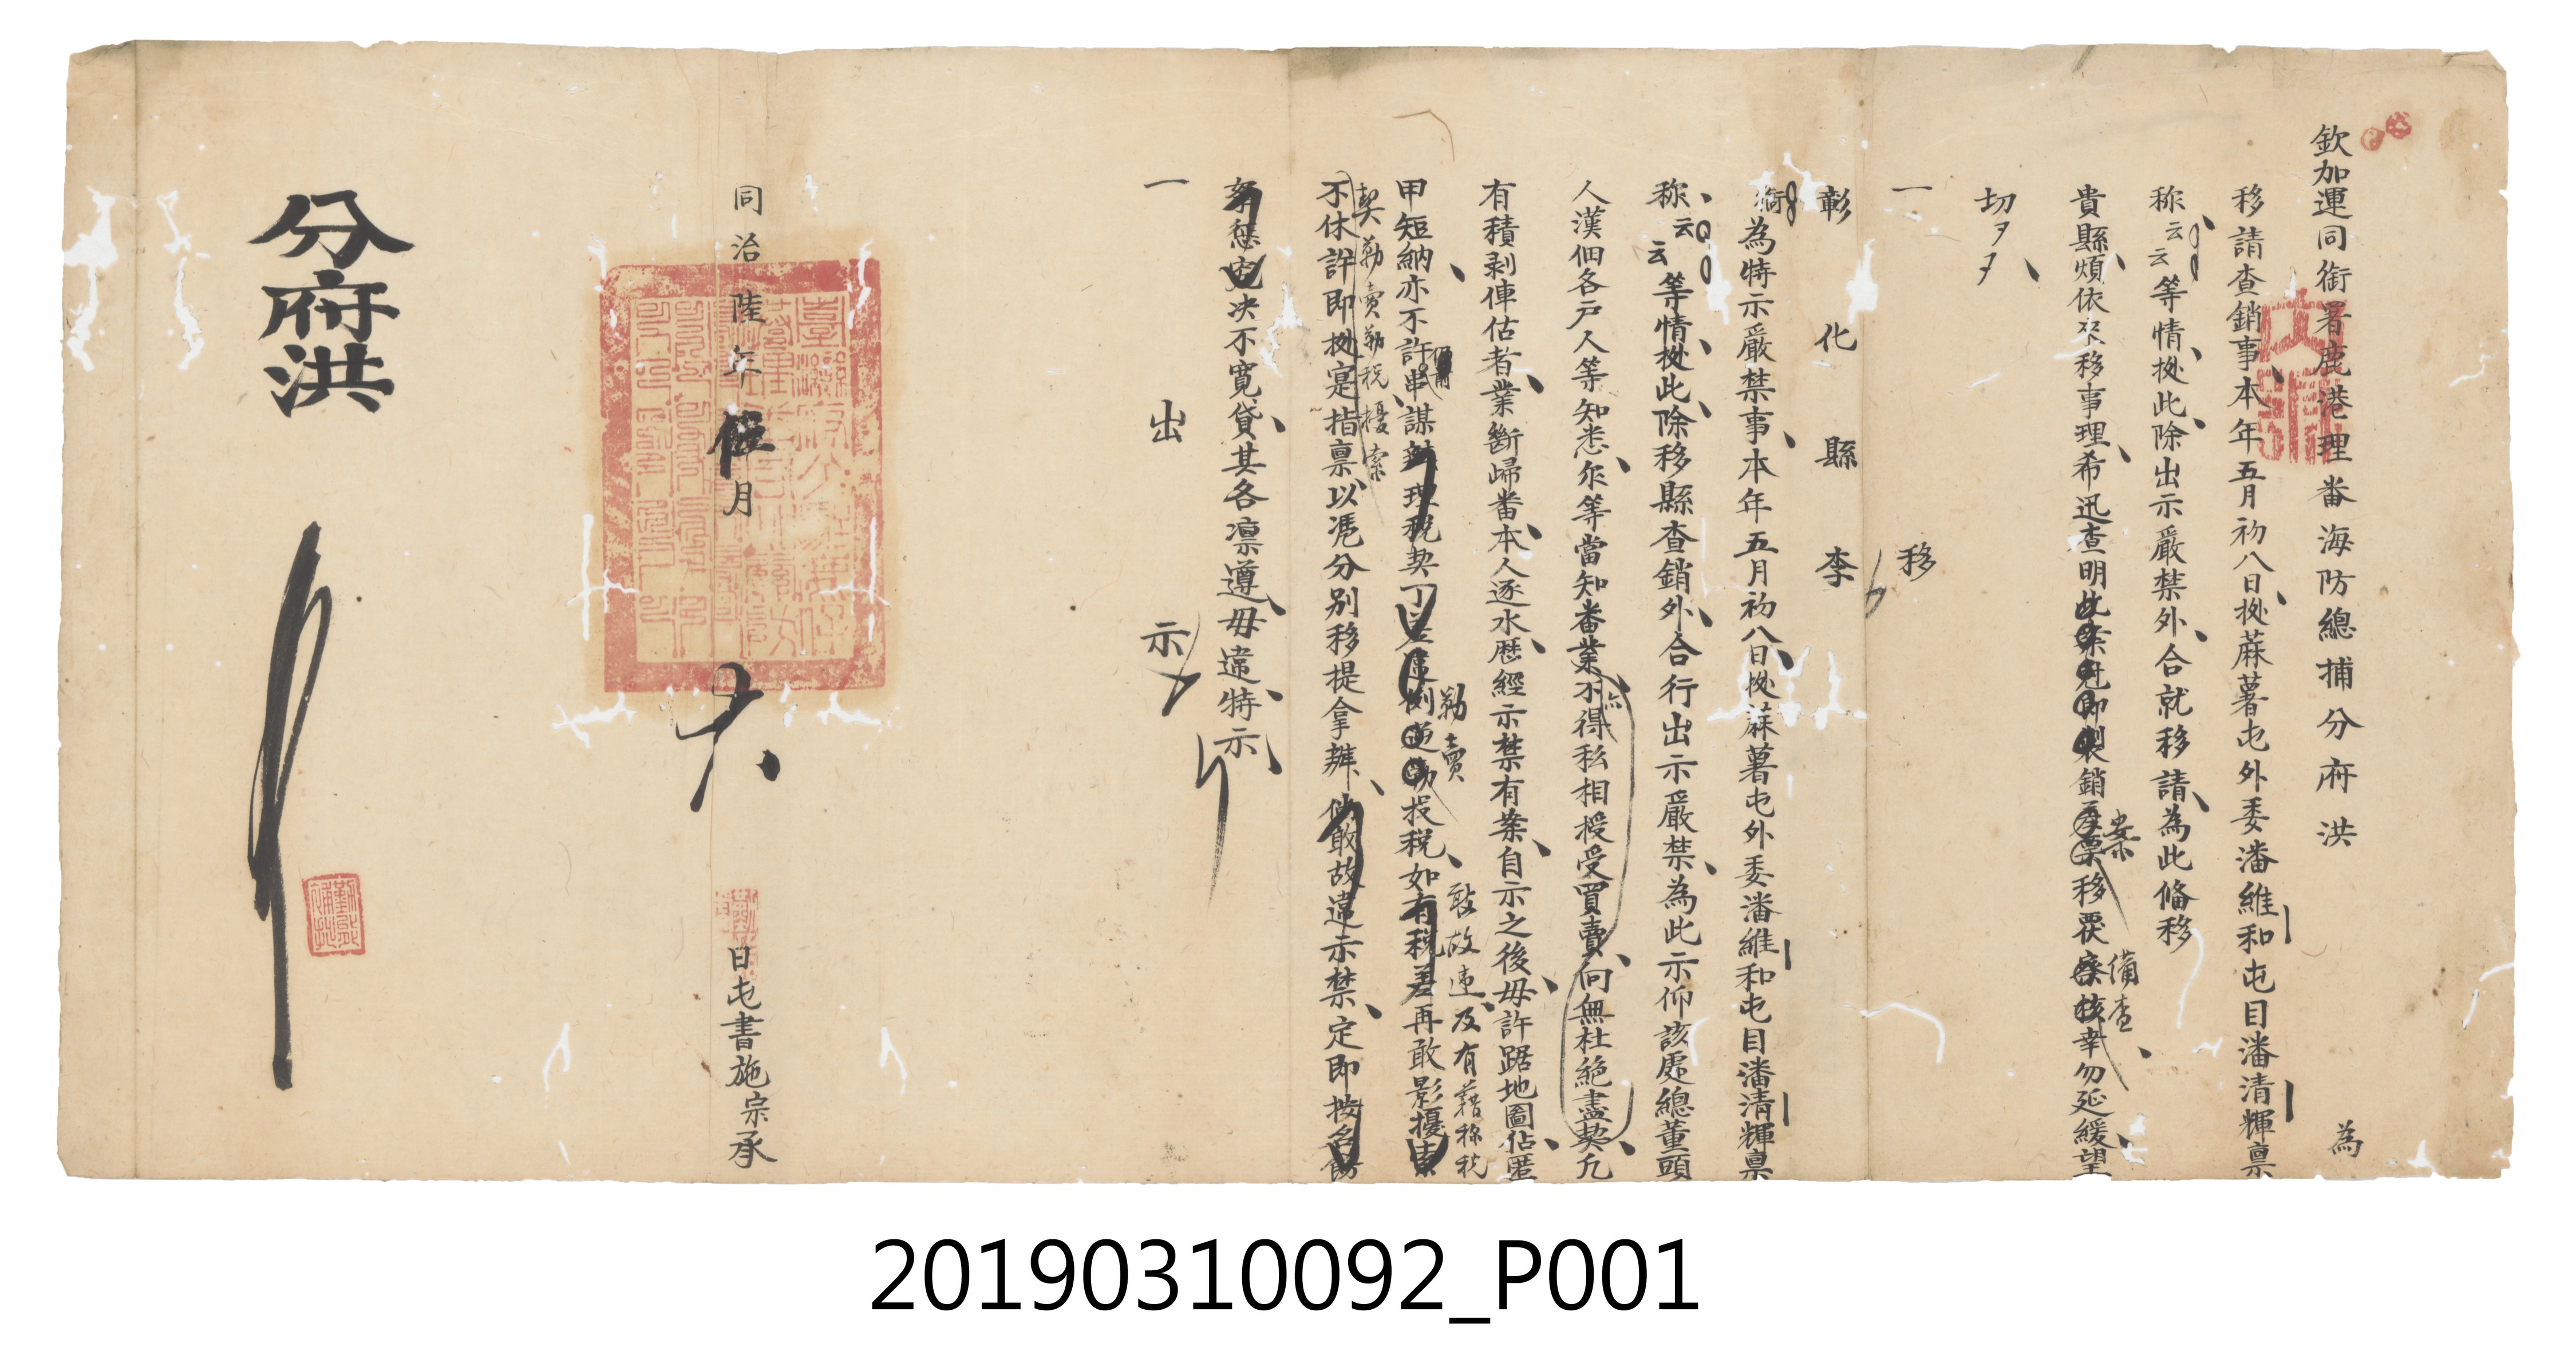 欽加運同銜署鹿港理番海防總捕分府洪　為
移請查銷事本年五月初八日拠蔴薯屯外委潘維和屯目潘清輝禀
称云云等情拠此除出示嚴禁外合就移請為此備移
貴縣煩依來移事理希迅查明此案即銷案移覆備查幸勿延緩望
切ヌヌ
一　移
彰化縣李
銜為特示嚴禁事本年五月初八日拠蔴薯屯外委潘維和屯目潘清輝禀
称云云等情拠此除移縣查銷外合行出示嚴禁為此示仰該處總董頭
人漢佃各戶人等知悉尔等當知番業不得私相授受買賣向無杜絕盡契凡
有積剥俥估者業斷歸番本人逐水歷經示禁有案自示之後毋許踞地圖佔匿
甲短納亦不許串謀理税契勒賣投税如敢故違及有藉称税
契勒賣勒税擾索
再敢影擾
不休許即拠寔指禀以凴分别移提拿辦倘敢故違示禁定即按名飭
決不寛貸其各凛遵毋違特示
一　出　示
同治陸年伍月
六
日屯書施宗承
分府洪
20190310092_P001